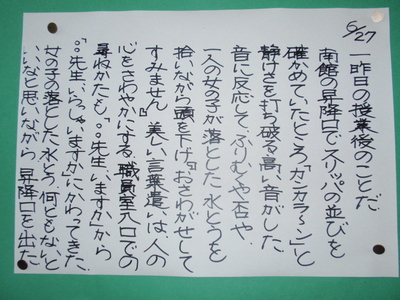 6/27
一昨日の授業後のことだ
南館の昇降口でスリッパの並びを
確かめていたところ「ガンガラ〜ン」と
静けさを打ち破る高い音がした。
音に反応して、ふりむくや否や、
一人の女の子が落とした水とうを
拾いながら頭を下げ「おさわがせして
すみません」美しい言葉遣いは、人の
心をさわやかにする。職員室入口での
尋ねかたも「○○先生いますか」から
「○○先生いらっしゃいますか」にかわってきた。
女の子の落とした水とう、何ともないと
いいなと思いながら昇降口を出た